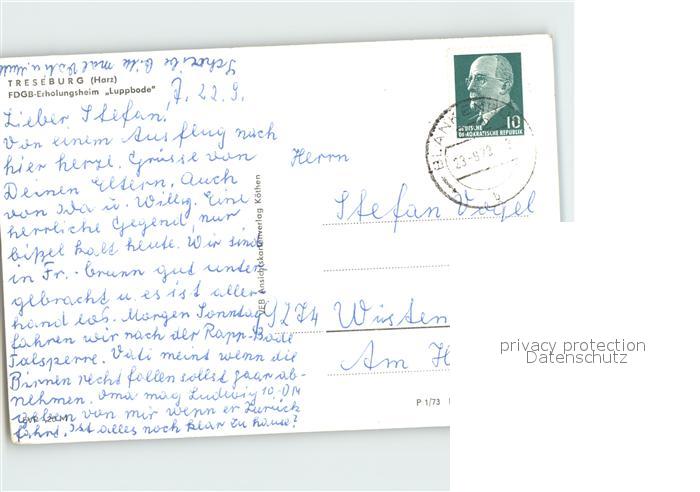 Schreibe bitte mal
TRESEBURG (Harz)
FDGB-Erholungsheim „Luppbode"
22.9.
Lieber Stefan,
von einem Ausflug nach
hier herzl. Grüsse von
Deinen Eltern. Auch
von Ida u. Willy. Eine
herrliche Gegend, nur
bißel kalt heute. Wir sind
in Fr.-brunn gut unter
gebracht u. es ist aller
hand los. Morgen Sonntag
fahren wir nach der Rapp-Bode
Talsperre. Vati meint wenn die
Birnen recht fallen sollst paar ab-
nehmen. Oma mag Ludwig 10,- DM
geben von mir wenn er zurück
fährt. Ist alles noch klar zu hause?
VEB Ansichtskartenverlag Köthen
10
DEUTSCHE
DEMOKRATISCHE REPUBLIK
BLANKEN
Herrn
Stefan Vogel
9274 Wüsten
Am H
P 1/73
privacy protection
Datenschutz